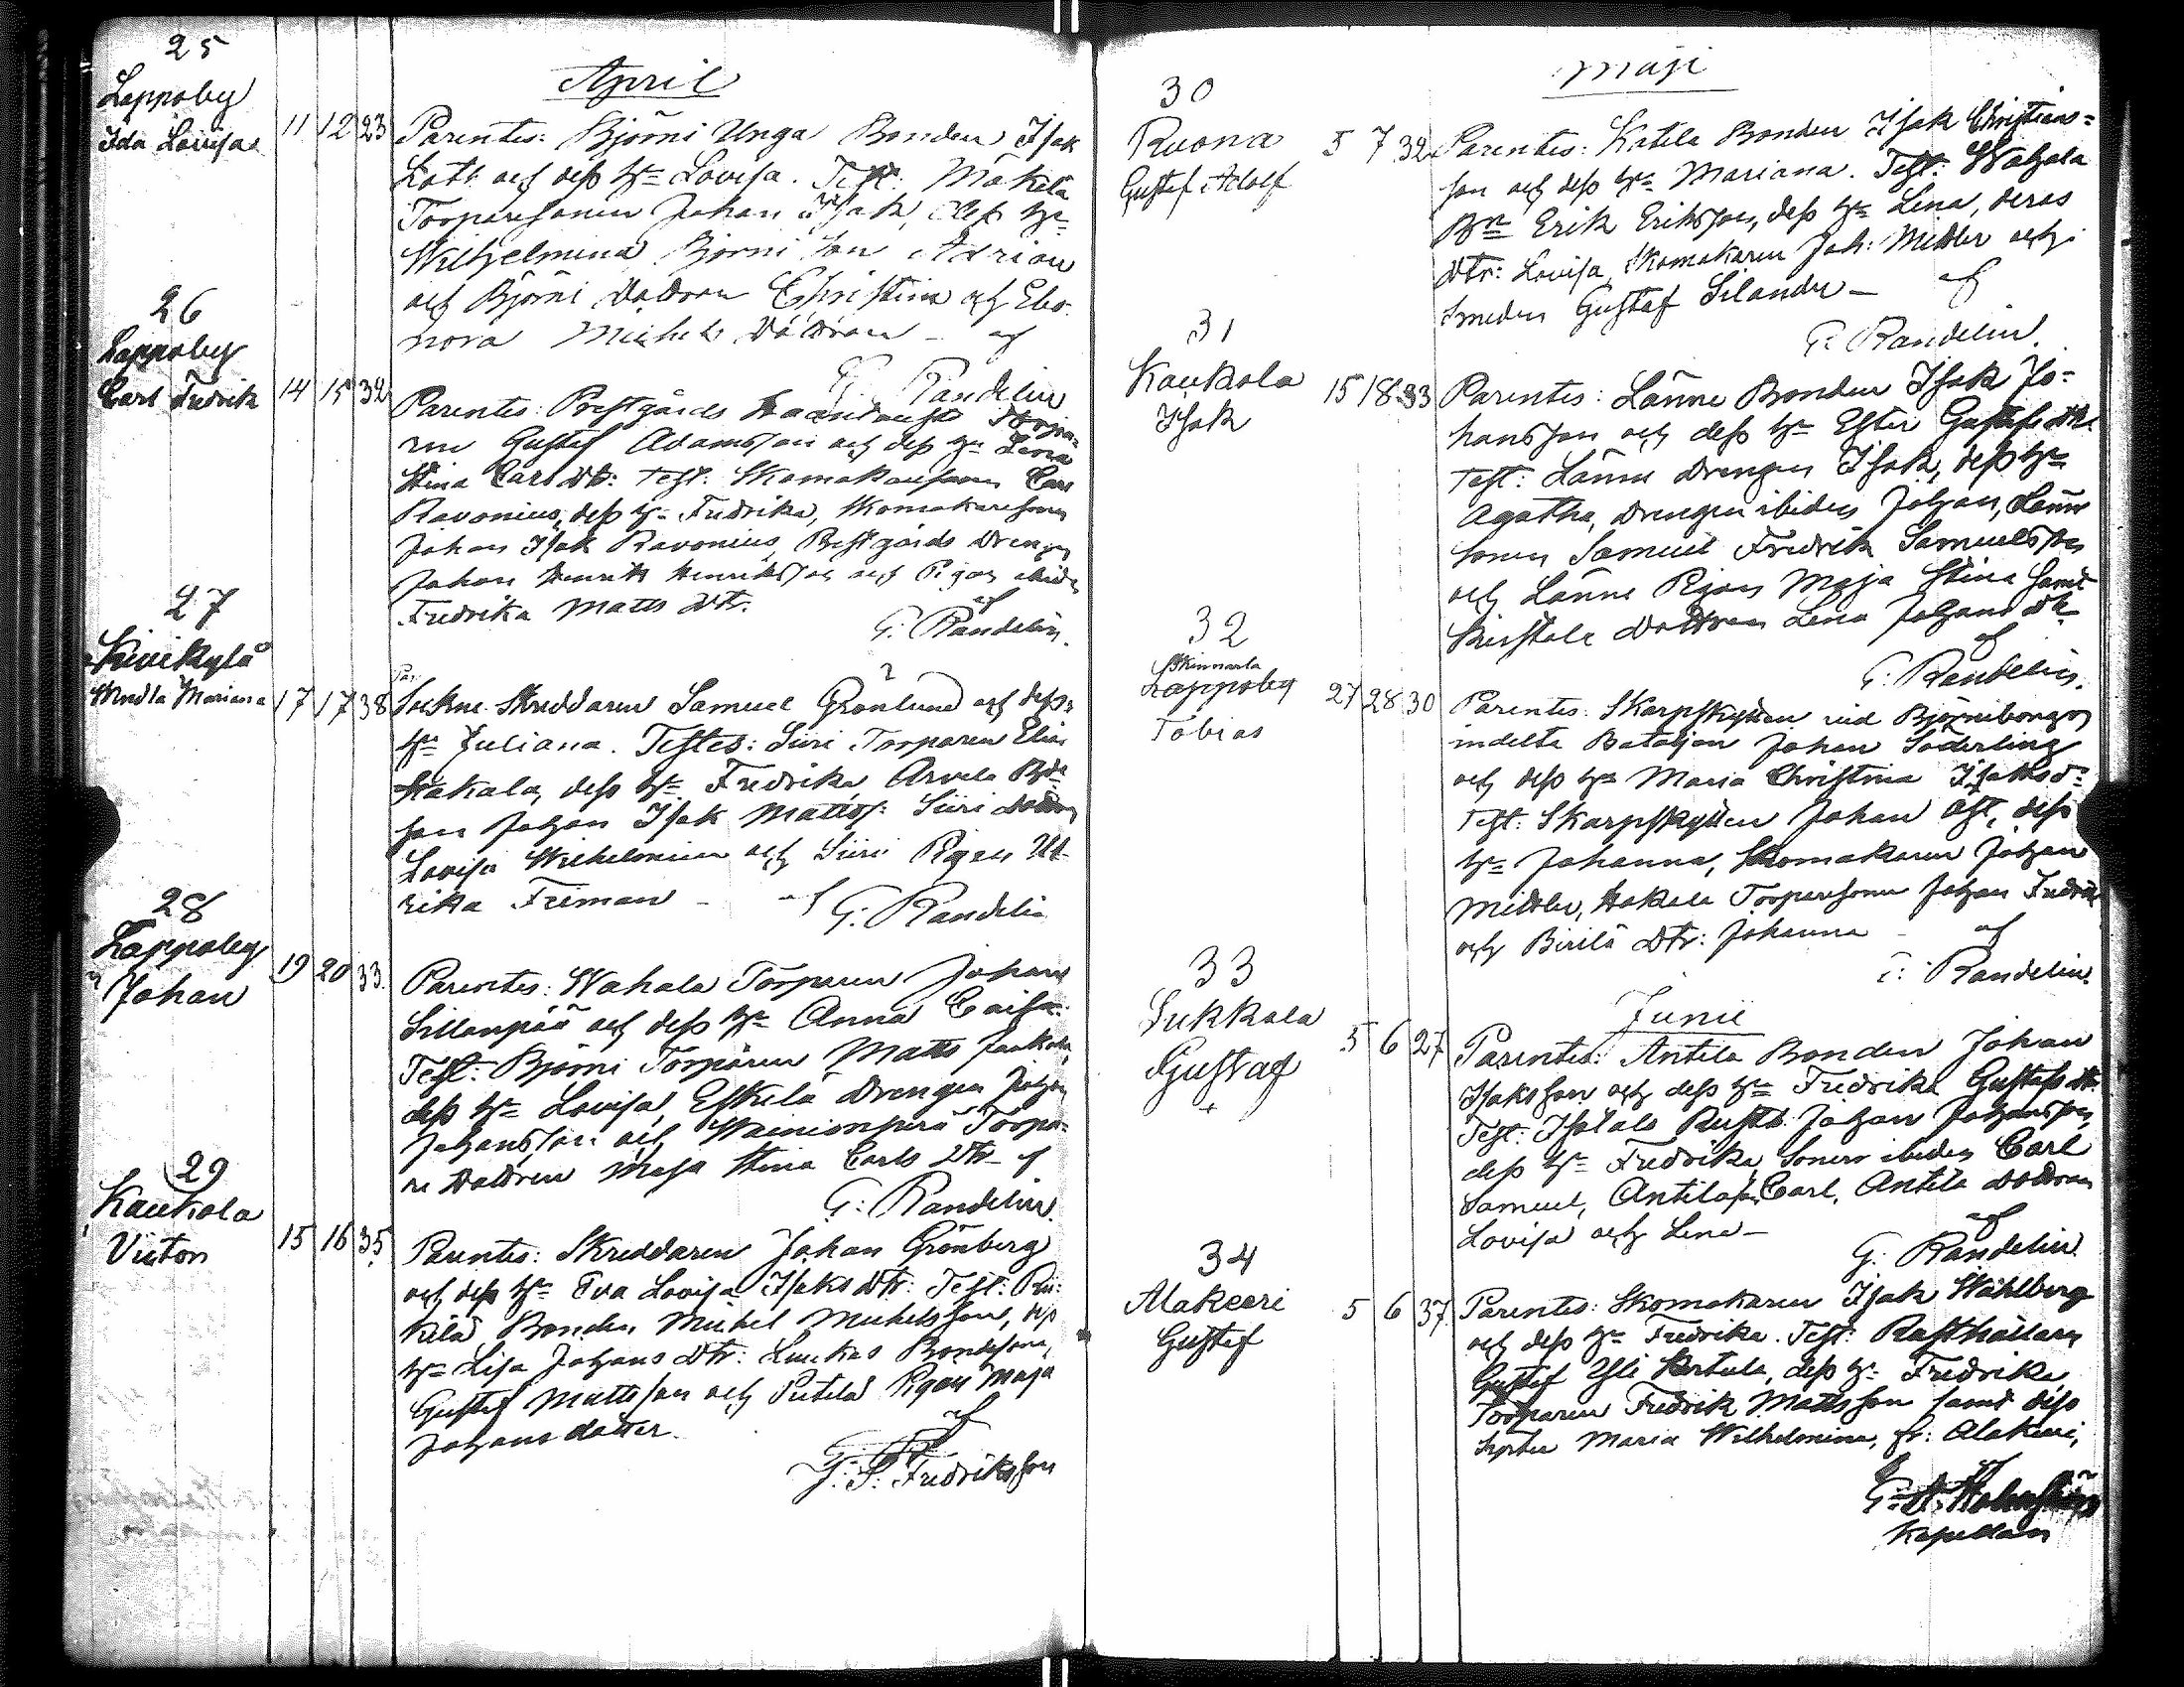 April
25
Lappoby
Ida Lovisa
11 12 23
Parentes: Björni Unga Bonden Isak
och dess hu Lovisa. Test: Mäkilä
Torparesonen Johan Isak, dess hu
Wilhelmina Björni Son Adrian
och Björni Dottren Christina och Eleo
nora Michels Dottren - af
G: Randelin
26
Lappoby
Carl Fredrik
14 15 32
Parentes: Prestgårds Torpa=
ren Gustaf Adamsson och dess hu Lena
Stina Carls Dtr: Test: Skomakaresonen Carl
Ravonius, dess hu Fredrika, Skomakaresonen
Johan Isak Ravonius, Prestgårds Drengen
Johan Henrik Henriksson och Pigan ibidem
Fredrika Matts Dtr.
af
G: Randelin.
27
Kivikylä
Mariana
17 17 38
Par:
Sockne Skreddaren Samuel Grönlund och dess
hu Juliana. Testes: Siiri Torparen Elias
Hakala, dess hu Fredrika Arvela
son Johan Isak Mattss: Siiri Dottren
Lovisa Wilhelmina och Siiri Pigan Ul-
rika Friman - af
G: Randelin
28
Lappoby
Johan
19 20 33.
Parentes: Wahala Torparen Johan
Sillanpää och dess hu Anna Caisa.
Test: Björni Torparen Matts
dess hu Lovisa, Eskelä Drengen Johan
Johansson och Wainionperä Torpa=
re Dottren Maja Stina Carls Dtr - af
G: Randelin.
29
Kaukola
Victor
15 16 35
Parentes: Skreddaren Johan Grönberg
och dess hu Eva Lovisa Isaks Dtr: Test:
kilä Bonden Michel Michelsson, dess
hu Lisa Johans Dtr: Luukas Bondesonen,
Gustaf Mattsson och Pietilä Pigan Maja
Johans dotter.
af
J: S: Fredriksson
Maji
30
Ruona
Gustaf Adolf
5 7 32
Parentes: Katila Bonden Isak Christians=
son och dess hu Mariana. Test: Wahala
Bn Erik Eriksson, dess hu Lena, deras
Dtr: Lovisa, Skomakaren Joh: Midtler och
Smeden Gustaf Silander - af
G: Randelin.
31
Kaukola
Isak
15 18 33
Parentes: Länne Bonden Isak Jo=
hansson och dess hu Ester Gustafs dtr.
Test: Länne Drengen Isak, dess hu
Agatha, Drengen ibidem Johan, Länne
sonen Samuel Fredrik Samuelsson
och Länne Pigan Maja Stina samt
Dottren Lena Johans Dtr
af
G: Randelin.
32
Skinnarla
Lappoby
Tobias
27 28 30
Parentes: Skarpskytten vid Björneborgs
indelta Bataljon Johan Söderling
och dess hu Maria Christina Isaks dr
Test: Skarpskytten Johan Ast, dess
hu Johanna, Skomakaren Johan
Midtler, Hakala Torparesonen Johan Fredrik
och Birilä Dtr: Johanna - af
G: Randelin.
33
Sukkala
Gustaf
+
Junii
5 6 27
Parentes: Antila Bonden Johan
Isaksson och dess hu Fredrika Gustafs dtr.
Test: Isotalo Rusth: Johan Johansson,
dess hu Fredrika, Sonen ibidem Carl
Samuel, Antila son Carl, Antila Dottren
Lovisa och Lena -
af
G: Randelin.
34
Alakeeri
Gustaf
5 6 37
Parentes: Skomakaren Isak Wåhlberg
och dess hu Fredrika. Test: Rusthållaren
Gustaf Yli Kertula, dess hu Fredrika,
Torparen Fredrik Mattsson samt dess
syster Maria Wilhelmina, fr: Alakeeri,
af
Kapellan